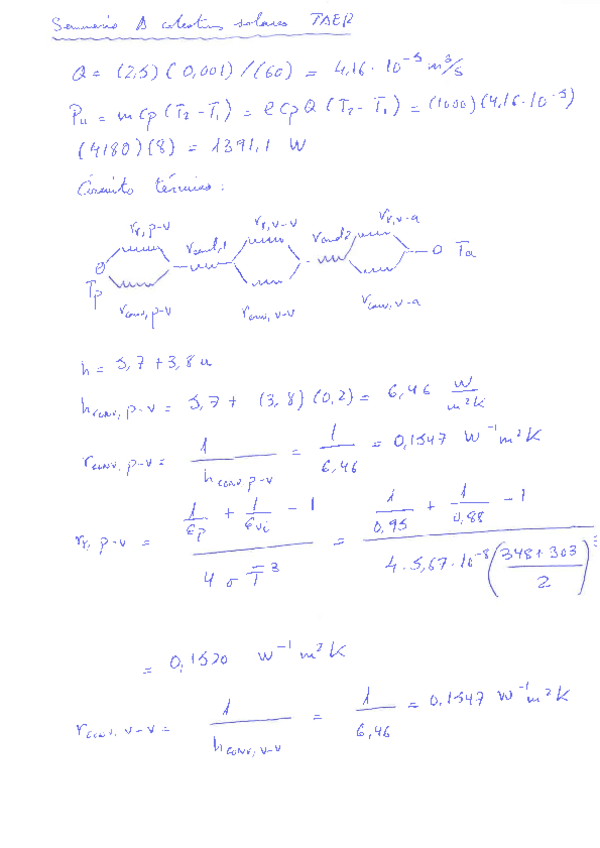 Seminario A colectores solares TAER
Q = (2,5) (0,001) / (60) = 4,16 · 10⁻⁵ m³/s
Pu = m Cp (T₂ - T₁) = ρ Cp Q (T₂ - T₁) = (1000) (4,16 · 10⁻⁵)
(4180) (8) = 1391,1 W
Circuito térmico:
r r, p-v r r, v-v r r, v-a
r cond,1 r cond2
Tp Ta
r conv, p-v r conv, v-v r conv, v-a
h = 5,7 + 3,8 u
h conv, p-v = 5,7 + (3,8) (0,2) = 6,46 W/m²K
r conv, p-v = 1 / h conv p-v = 1 / 6,46 = 0,1547 W⁻¹ m² K
r r, p-v = (1/εp + 1/εvi - 1) / (4 σ T̄³) = (1/0,95 + 1/0,88 - 1) / (4 · 5,67 · 10⁻⁸ ((348 + 303)/2)³)
= 0,1520 W⁻¹ m² K
r conv, v-v = 1 / h conv, v-v = 1 / 6,46 = 0,1547 W⁻¹ m² K